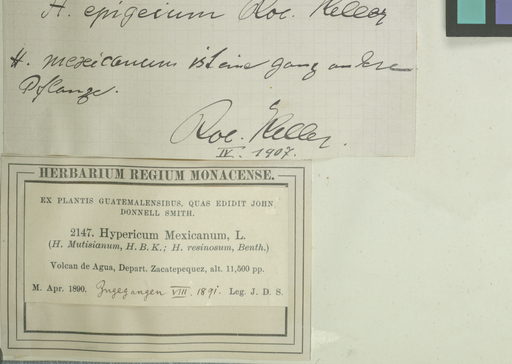 H. epigeium Rob. Keller
H. mexicanum ist eine ganz andere
Pflanze.
Rob. Keller.
IV. 1907.
HERBARIUM REGIUM MONACENSE.
EX PLANTIS GUATEMALENSIBUS, QUAS EDIDIT JOHN
DONNELL SMITH.
2147. Hypericum Mexicanum, L.
(H. Mutisianum, H. B. K.; H. resinosum, Benth.)
Volcan de Agua, Depart. Zacatepequez, alt. 11,500 pp.
M. Apr. 1890. Zugegangen VIII. 1891. Leg. J. D. S.